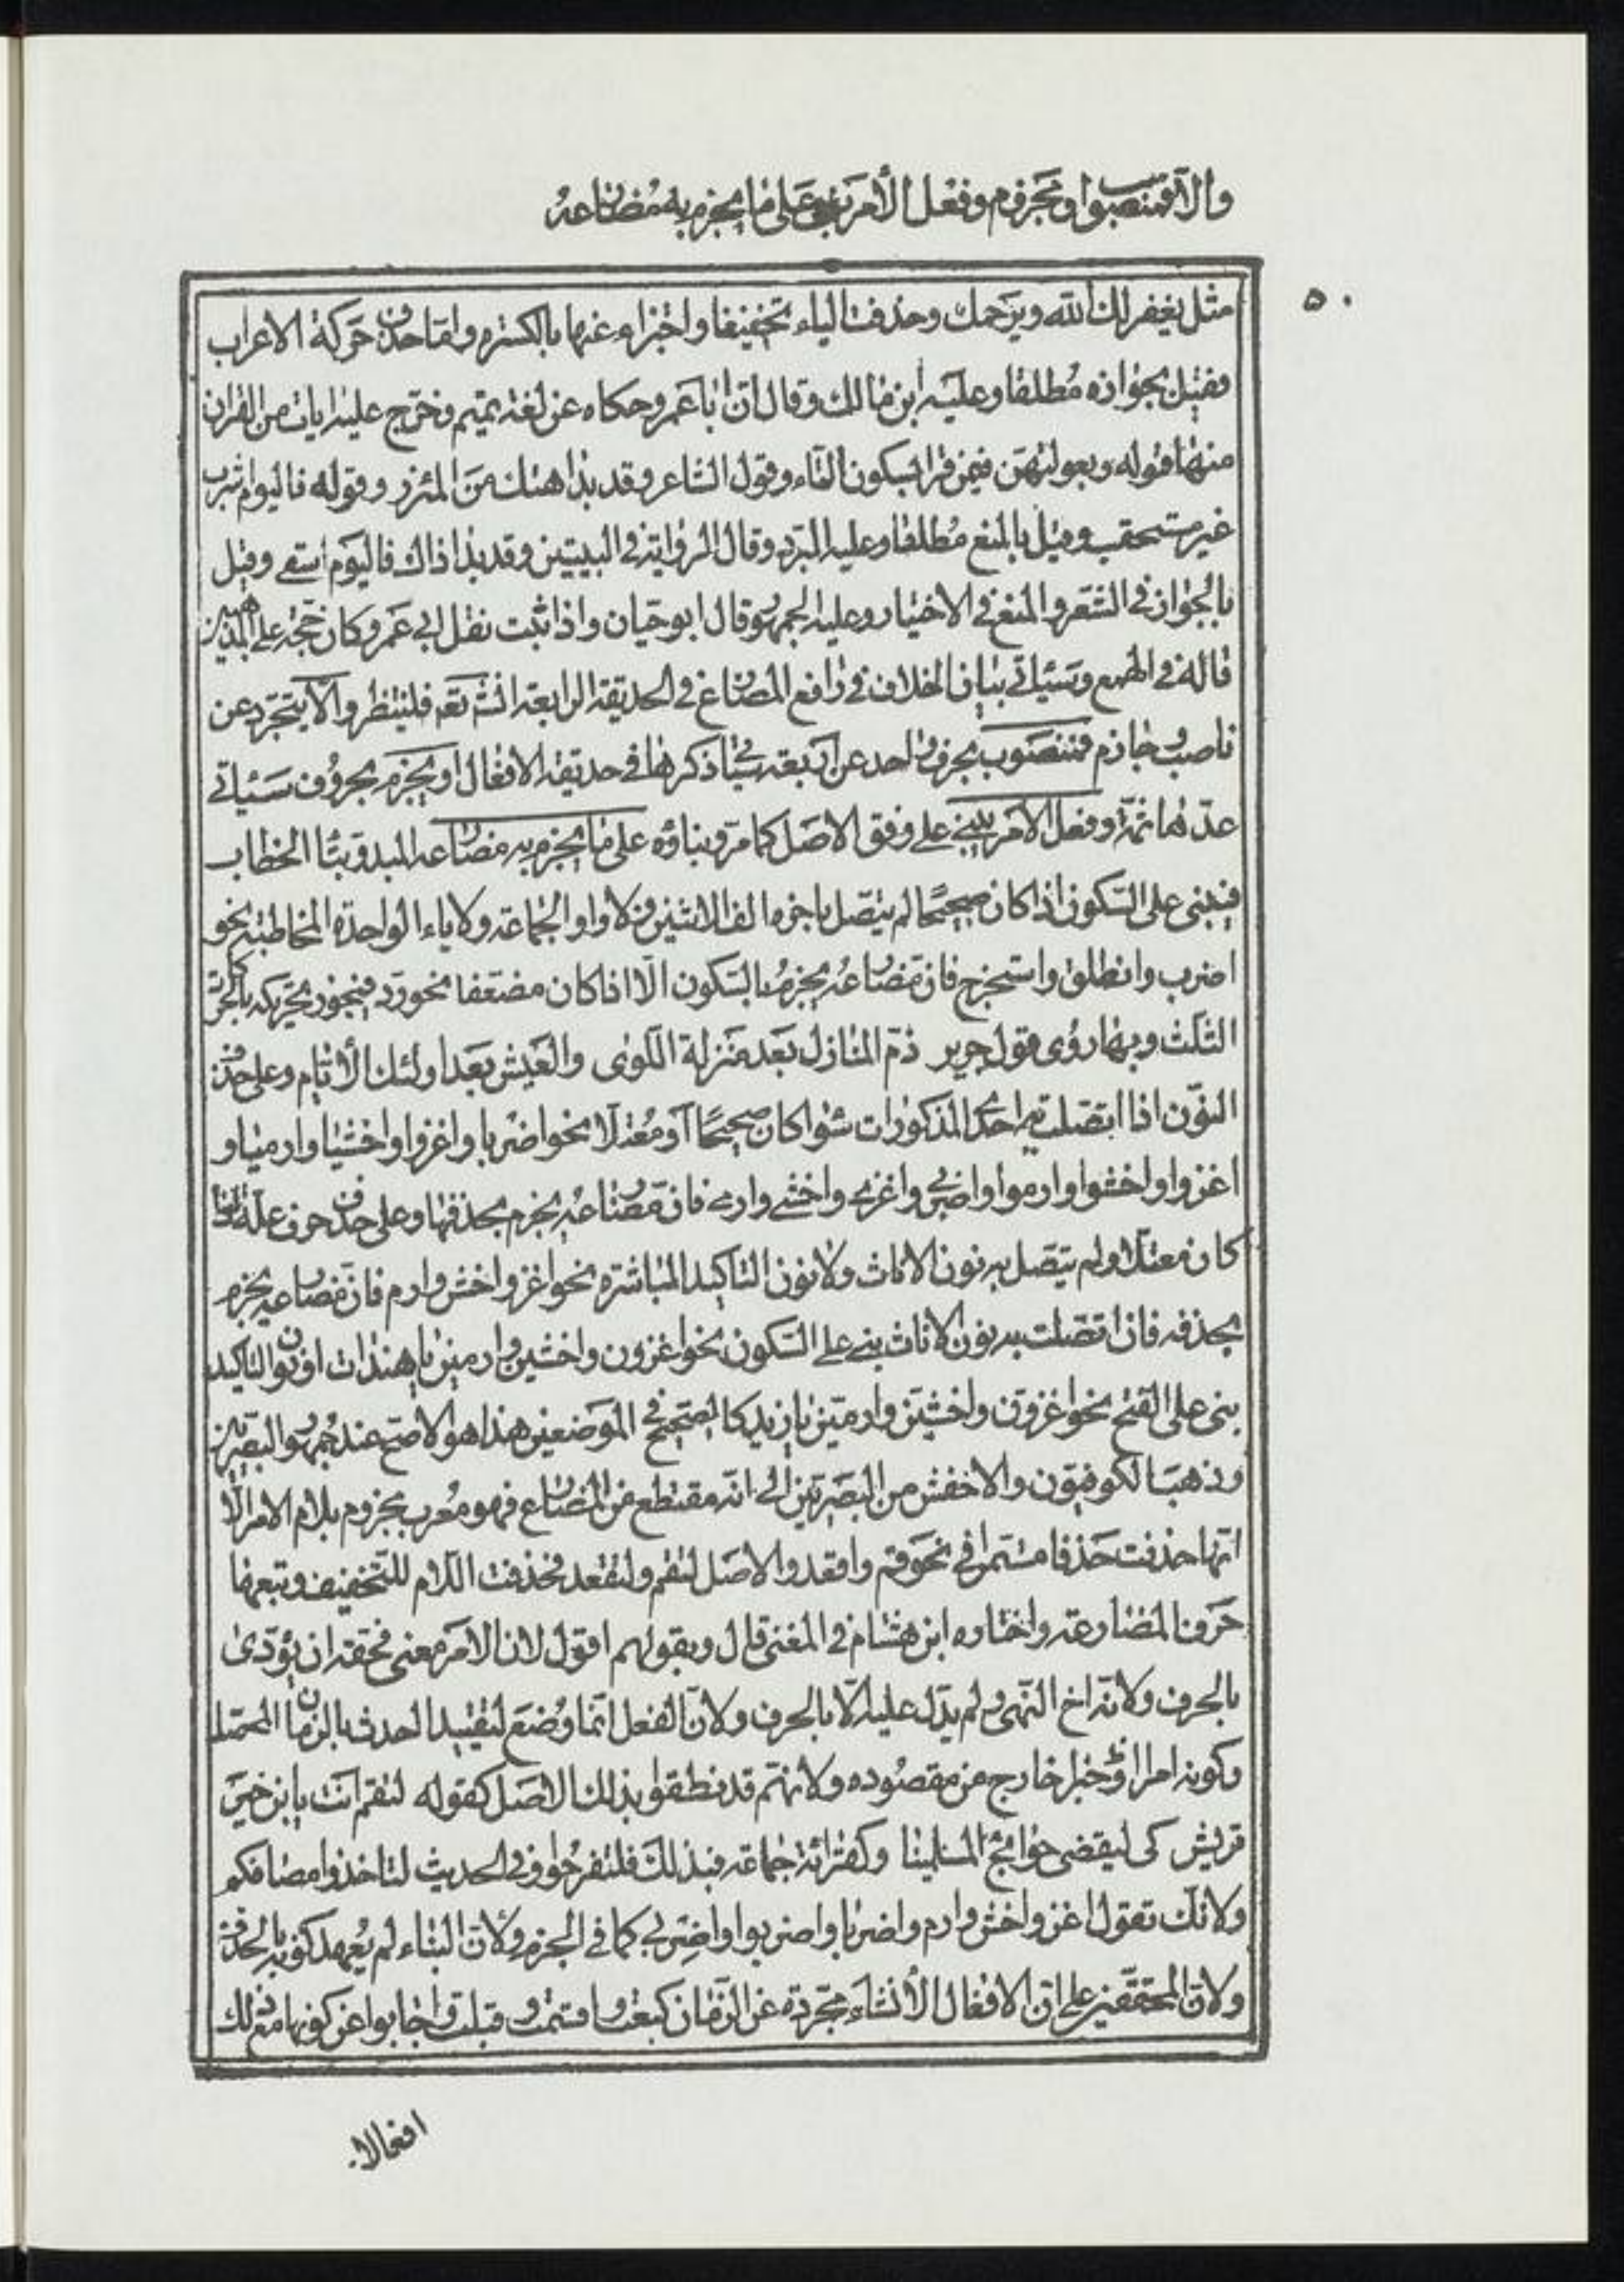 والا فمنصوب او مجزوم وفعل الأمر يبنى على ما يجزم به مضارعه
٥٠
مثل يغفر لك الله ويرحمك وحذفت الياء تخفيفا واجتزاء عنها بالكسرة واما حذف حركة الاعراب
فقيل بجوازه مطلقا وعليه ابن مالك وقال ان ابا عمرو حكاه عن لغة تميم وخرج عليه ايات من القران
منها قوله وبعولتهن فيمن قرا بسكون التاء وقول الشاعر وقد بدا هنك من المئزر وقوله فاليوم اشرب
غير مستحقب وقيل بالمنع مطلقا وعليه المبرد وقال الرواية في البيتين وقد بدا ذاك فاليوم اسقى وقيل
بالجواز في الشعر والمنع في الاختيار وعليه الجمهور قال ابو حيان واذا ثبت نقل ابي عمرو كان حجة على المذهبين
قاله في الهمع وسيأتي بيان الخلاف في رافع المضارع في الحديقة الرابعة انشاء الله تعالى فلينتظر والا يتجرد عن
ناصب وجازم فمنصوب بحرف واحد عن اربعة يأتي ذكرها في حديقة الافعال او يجزم بحروف سيأتي
عدها ثمة وفعل الأمر يبنى على وفق الاصل كما مر وبناؤه على ما يجزم به مضارعه المبدو بتا الخطاب
فيبنى على السكون اذا كان صحيحا لم يتصل باخره الف الاثنين ولا واو الجماعة ولا ياء الواحدة المخاطبة نحو
اضرب وانطلق واستخرج فان مضارعه يجزم بالسكون الا اذا كان مضعفا نحو رد فيجوز تحريكه بالحركات
الثلث وبها روى قول جرير ذم المنازل بعد منزلة اللوى والعيش بعد اولئك الأيام وعلى حذف
النون اذا اتصلت به احد المذكورات سوا كان صحيحا أو معتلا نحو اضربا واغزوا واخشيا وارميا و
اغزوا واخشوا وارموا واضربي واغزي واخشي وارمي فان مضارعه يجزم بحذفها وعلى حذف حرف علة اذا
كان معتلا ولم يتصل به نون الاناث ولا نون التاكيد المباشرة نحو اغز واخش وارم فان مضارعه يجزم
بحذفه فان اتصلت به نون الاناث بنى على السكون نحو اغزون واخشين وارمين يا هندات او نون التاكيد
بنى على الفتح نحو اغزون واخشين وارمين يا زيد كالصحيح في الموضعين هذا هو الاصح عند جمهور البصريين
وذهب الكوفيون والاخفش من البصريين الى انه مقتطع من المضارع فهو معرب مجزوم بلام الامر الا
انها حذفت حذفا مستمرا في نحو قم واقعد والاصل لتقم ولتقعد فحذفت اللام للتخفيف وتبعها
حرف المضارعة واختاره ابن هشام في المغنى قال وبقولهم اقول لان الامر معنى فحقه ان يؤدى
بالحرف ولانه اخ النهى ولم يدل عليه الا بالحرف ولان الفعل انما وضع لتقييد الحدث بالزمان المحصل
وكونه امرا او خبرا خارج عن مقصوده ولانهم قد نطقوا بذلك الاصل كقوله لتقم انت يا ابن خير
قريش كي لتقضى حوائج المسلمينا وكقرائة جماعة فبذلك فلتفرحوا وفي الحديث لتاخذوا مصافكم
ولانك تقول اغز واخش وارم واضربا واضربوا واضربي كما في الجزم ولان البناء لم يعهد كونه بالحذف
ولان المحققين على ان الافعال الأنشائية مجردة عن الزمان كبعت واقسمت وقبلت واجابوا عن كونها مع ذلك
افعالا